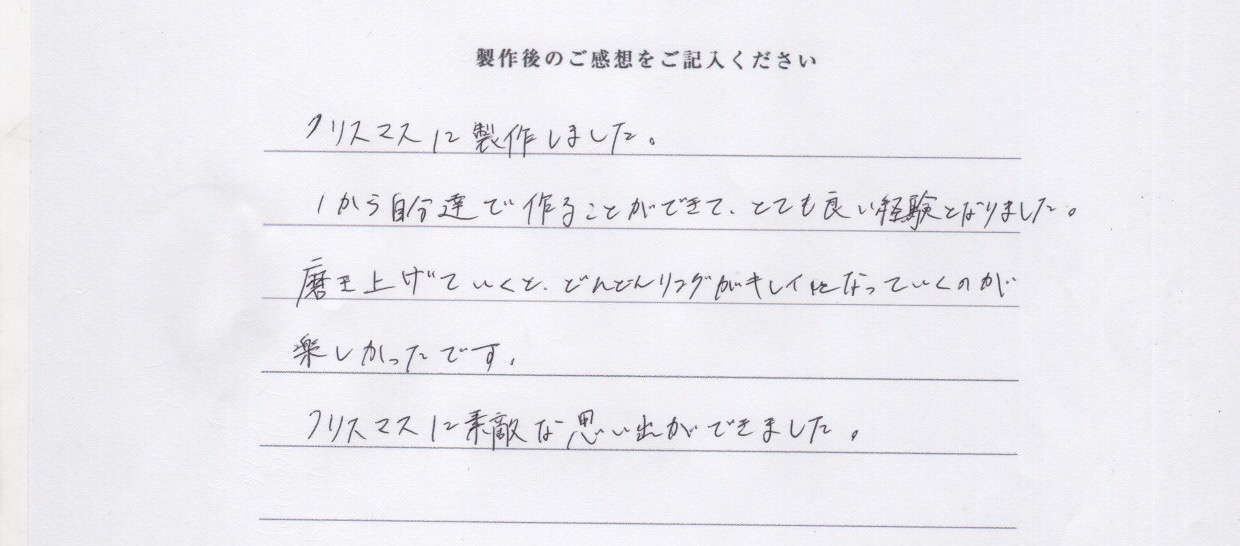 製作後のご感想をご記入ください
クリスマスに製作しました。
1から自分達で作ることができて、とても良い経験となりました。
磨き上げていくと、どんどんリングがキレイになっていくのが
楽しかったです。
クリスマスに素敵な思い出ができました。